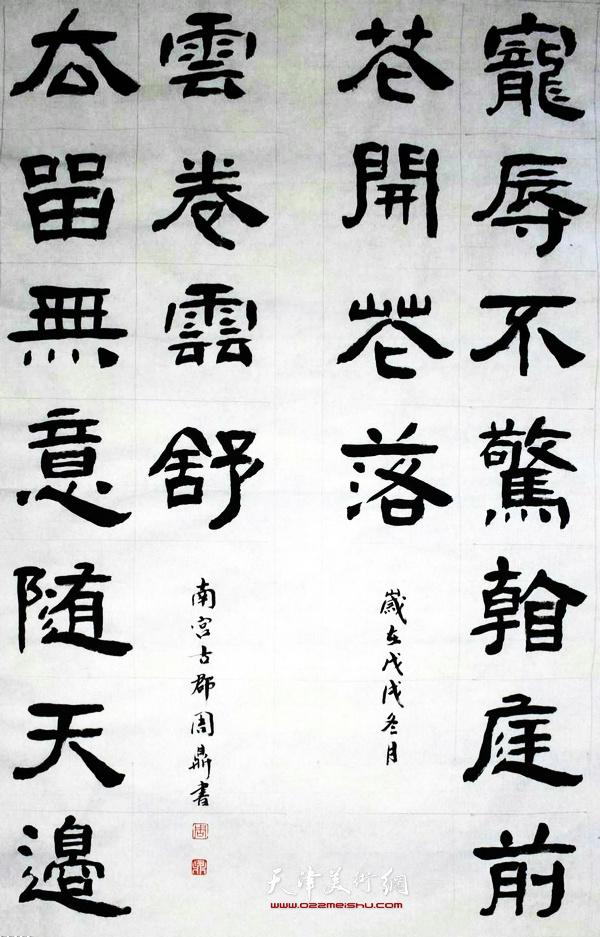 寵辱不驚看庭前
花開花落
歲在戊戌冬月
雲卷雲舒
南宮古郡周鼎書
周
鼎
去留無意隨天邊
天津美術網
www.022meishu.com